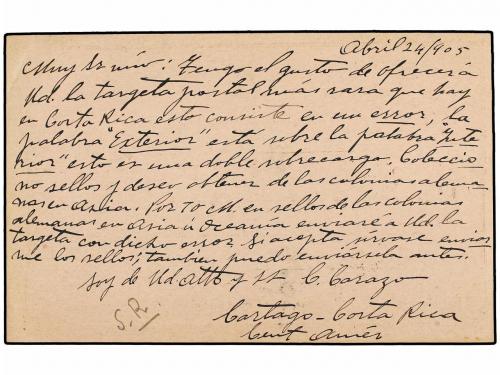 Abril 24/905
Muy Sr mío: Tengo el gusto de ofrecer á
Ud. la targeta postal mas rara que hay
en Costa Rica esto consiste en un error, la
palabra "Exterior" está sobre la palabra "Inte
rior" esto es una doble sobrecarga. Coleccio
no sellos y deseo obtener de las colonias alema
nas en Asia. Por 70 M. en sellos de las colonias
alemanas en Asia ú Oceanía enviaré a Ud. la
targeta con dicho error. Si acepta sírvase enviar
me los sellos; tambien puedo enviársela antes.
Soy de Ud. Atto y SS C. Carazo
S.R.
Cartago - Costa Rica
Cent Amér